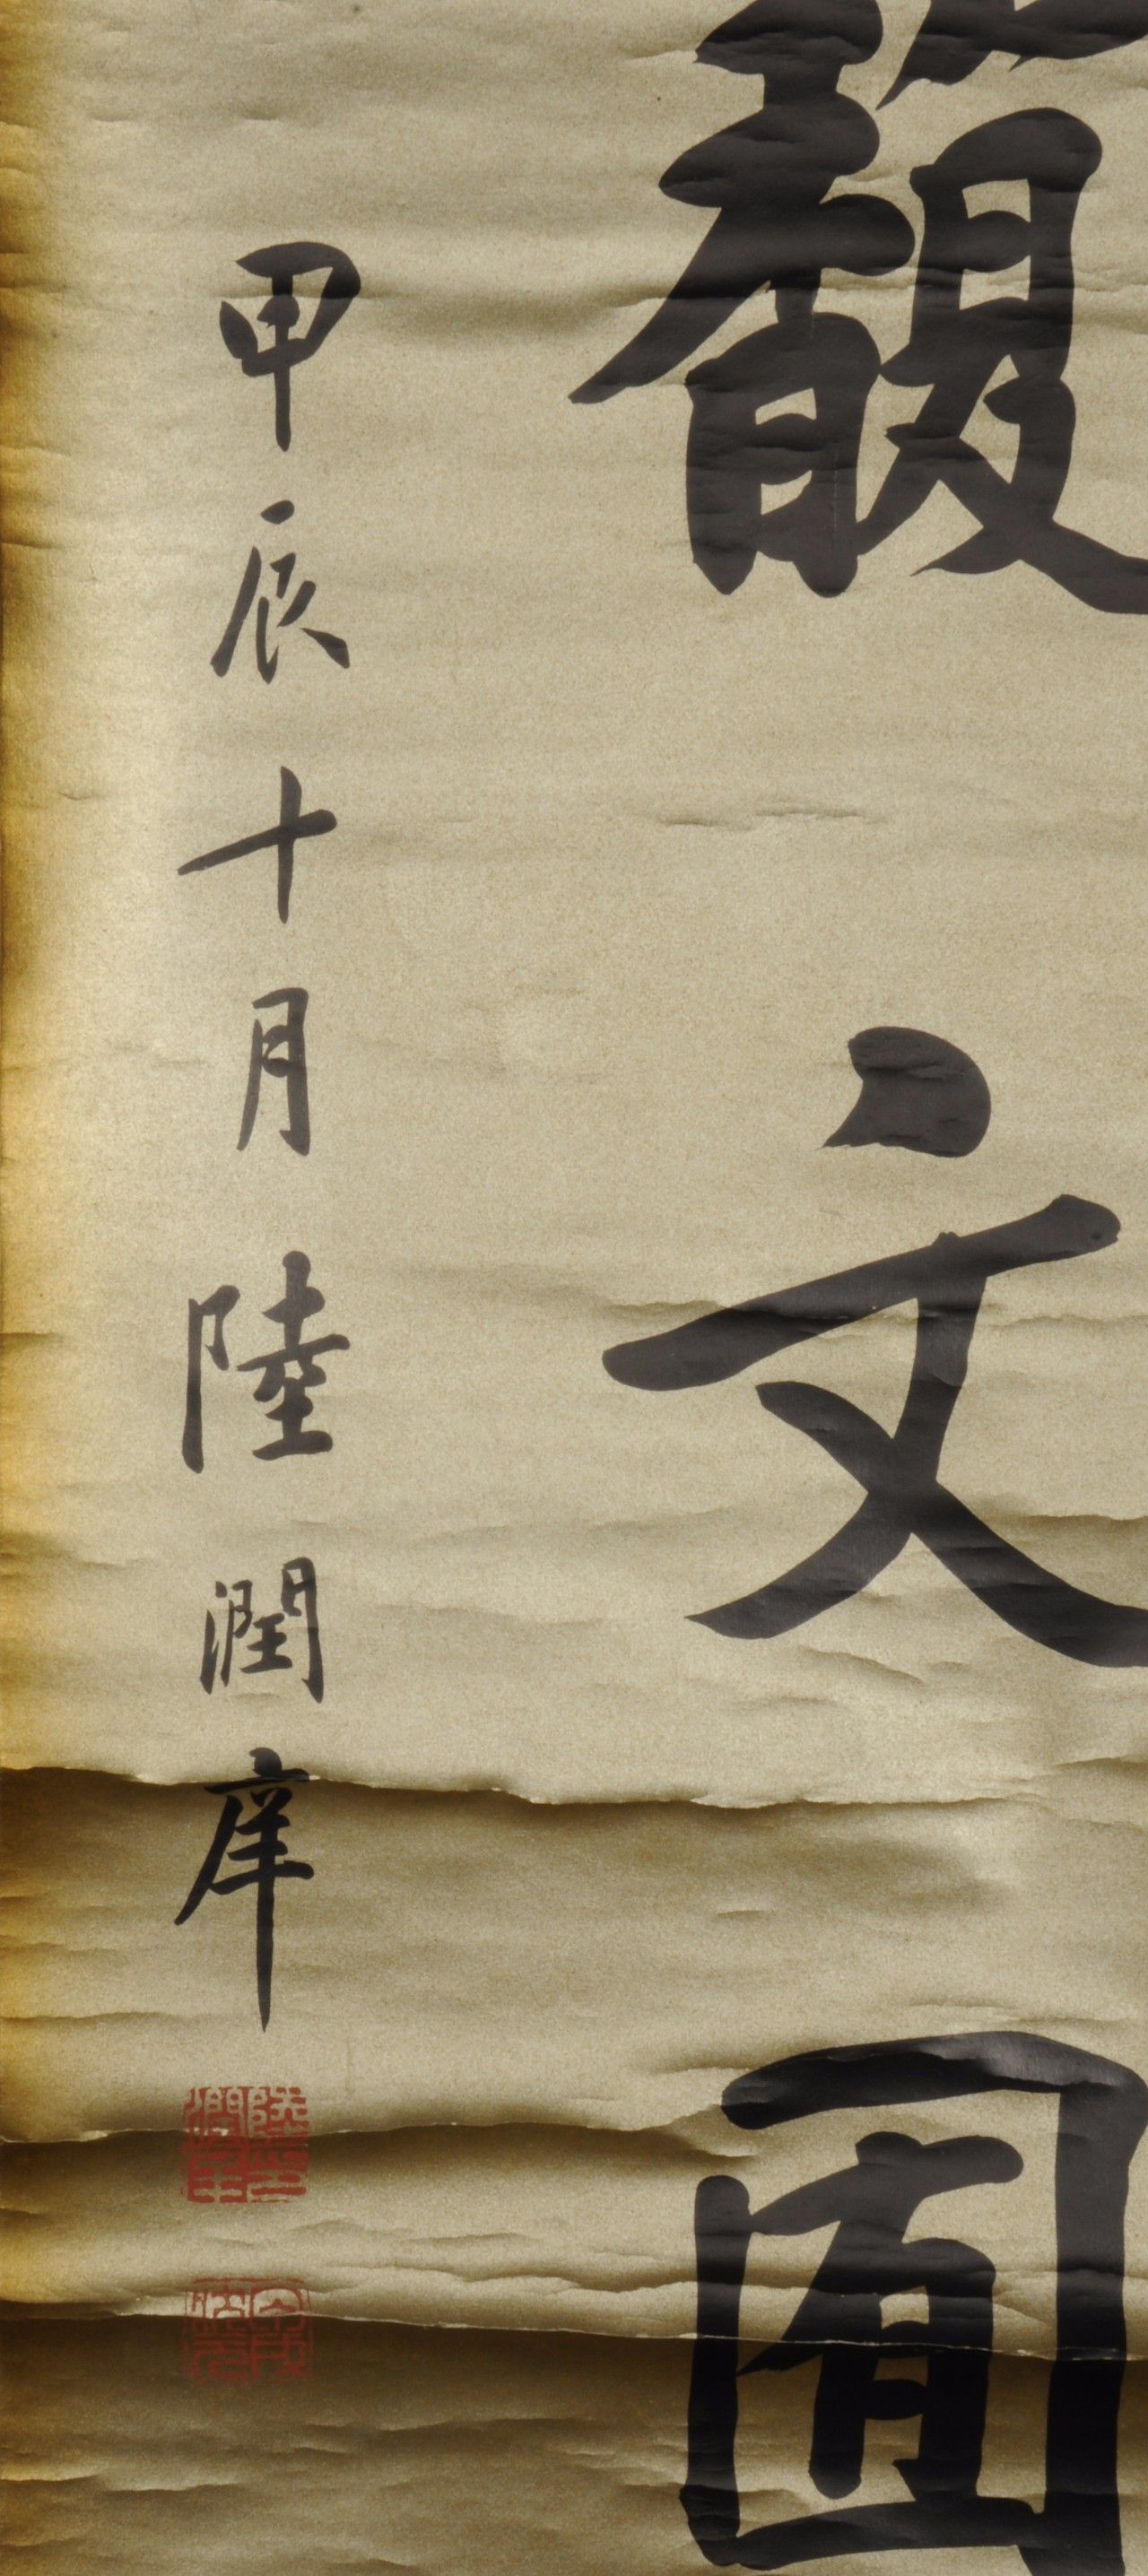 馥文囿
甲辰十月陸潤庠